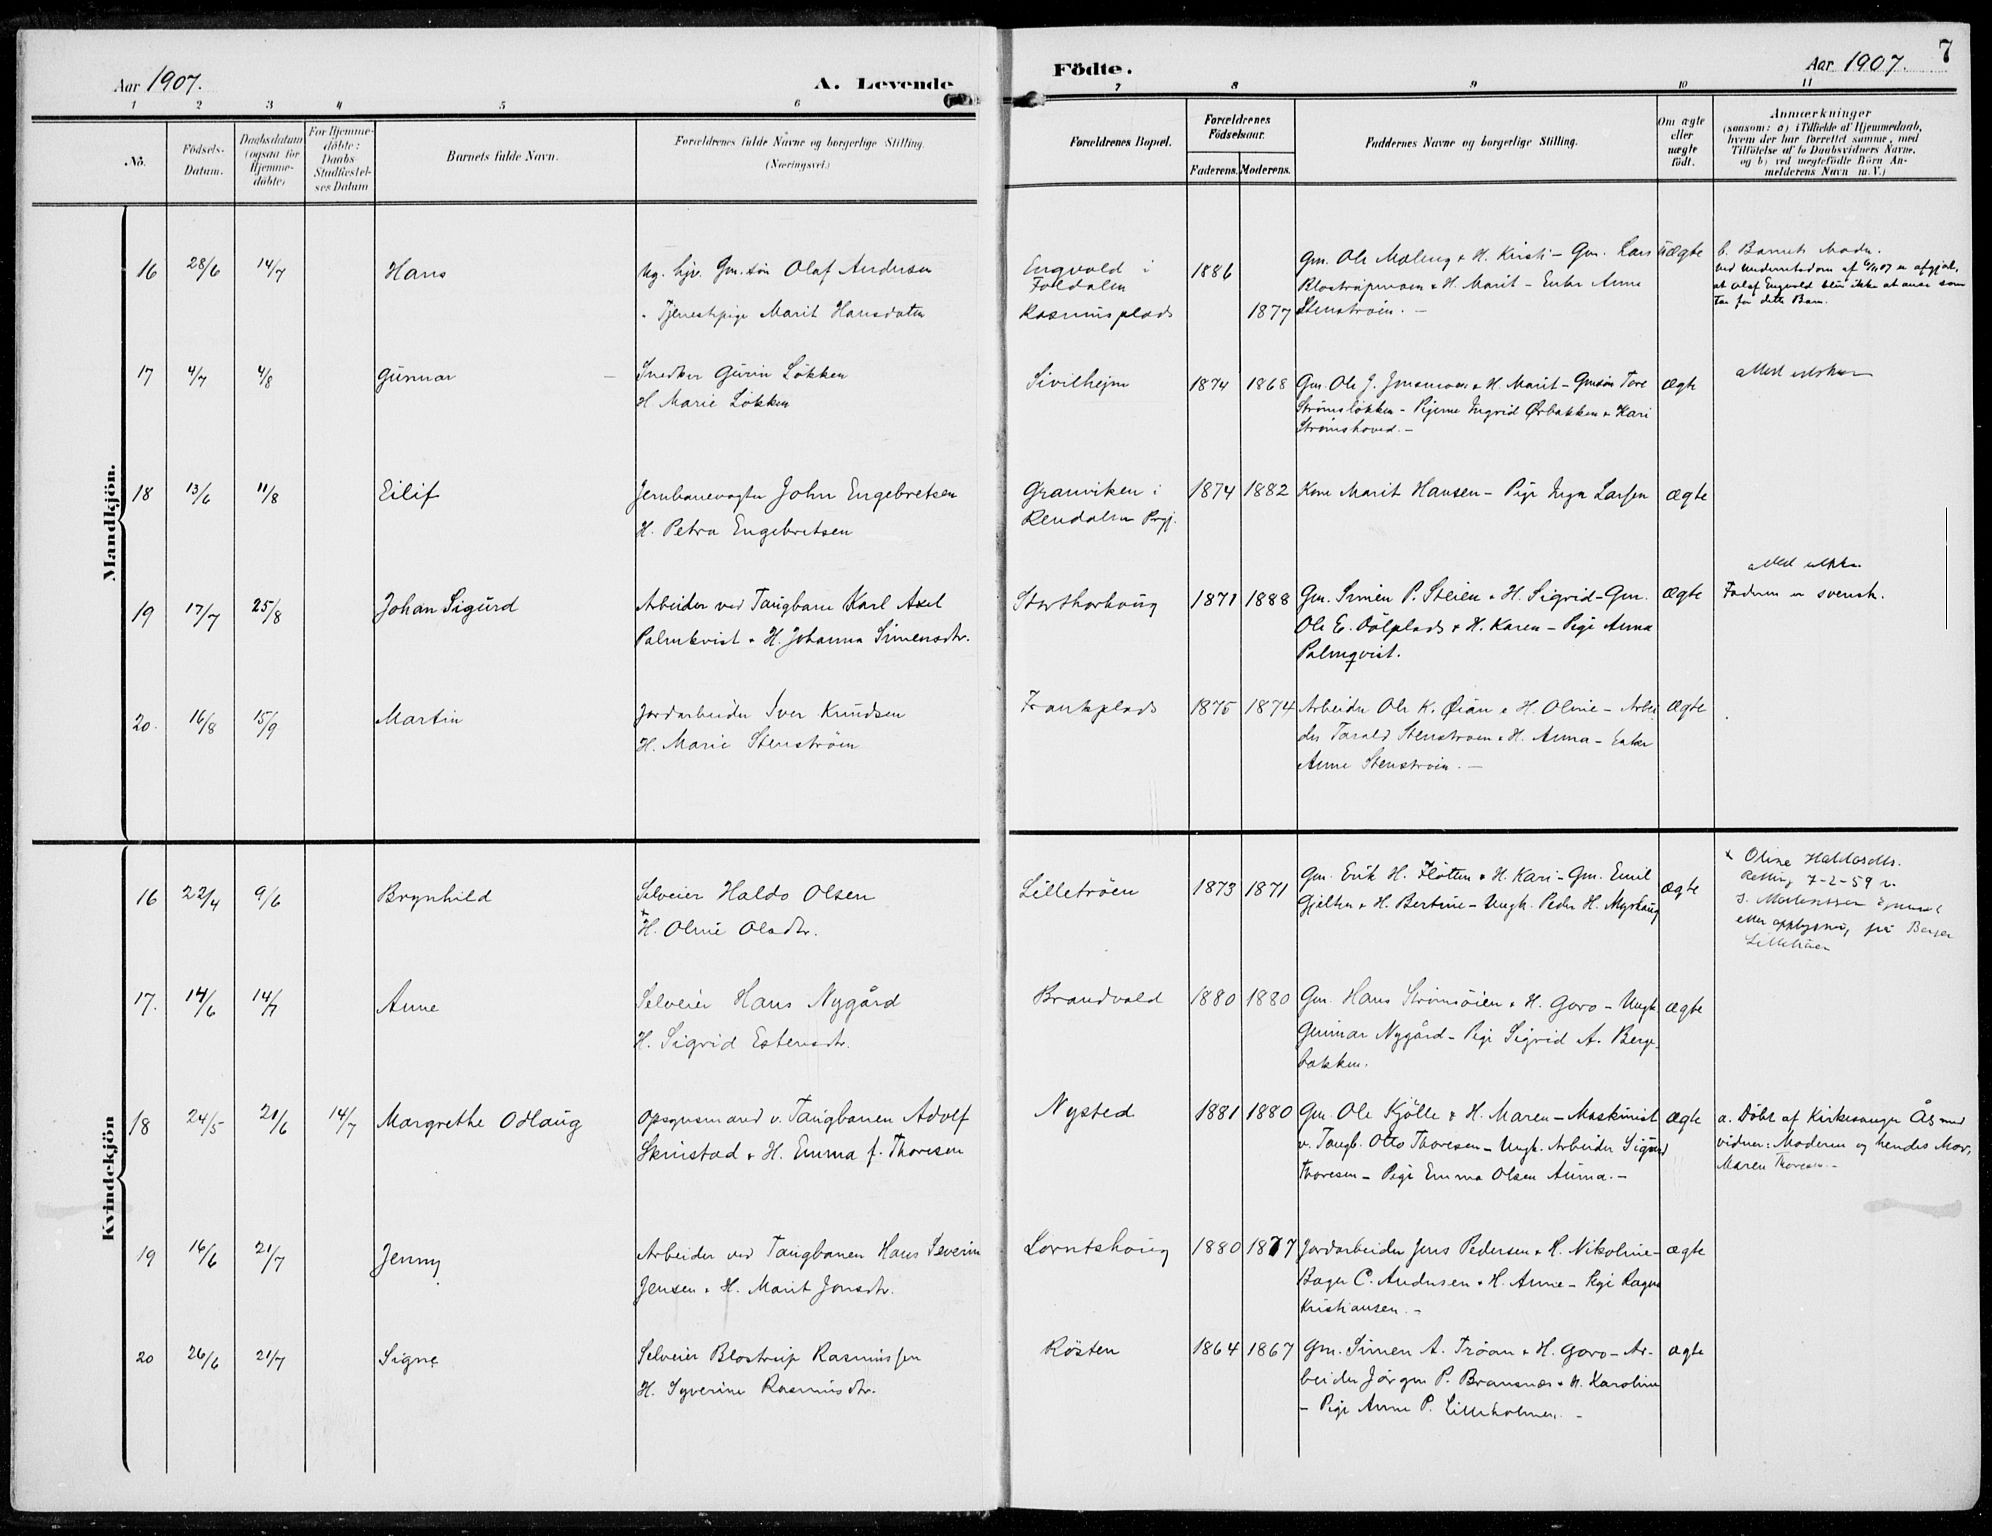 Aar 1907.
A. Levende
Födte.
Aar 1907.
7
1 2 3 4 5 6 7 8 9 10 11
No.
Födsels-
Datum.
Daabsdatum
(ogsaa for
Hjemme-
döbte)
For Hjemme-
döbte:
Daabs
Stadfæstel-
ses Datum
Barnets fulde Navn.
Forældrenes fulde Navne og borgerlige Stilling.
(Næringsvei.)
Forældrenes Bopæl.
Forældrenes
Födselsaar.
Faderens. Moderens.
Faddernes Navne og borgerlige Stilling.
Om ægte
eller
uægte
født.
Anmærkninger
(saasom: a) i Tilfælde af Hjemmedaab,
hvem der har forrettet samme, med
Tilföielse af to Daabsvidners Navne.
og b) ved uegtefödte Börn An-
melderens Navn m. V.)
Mandkjön.
16 28/6 14/7 Hans
Ug. Gm. søn Olaf Andersen
Tjenestepige Marit Hansdatter
Engvold i
Foldalen
Rasmusplads
1886
1877
Gm. Ole Moleng & H. Kirsti - Gm. Lars
& H. Marit - Enke Anne
Stenstrøen. -
Uægte
b. Barnets Moder.
ved Underretsdom af er afgjort,
at Olaf Engvold blir ikke at anse som
Far for dette Barn.
17 4/7 4/8 Gunnar
Snedker Løkken
H. Marie Løkken
Sivilhejm
1874 1868
Gm. Ole J. & H. Marit - Gmsøn Tore
Strømsløkken - Pigerne Ingrid Ørbakken & Kari
Strømshoved. -
ægte
18 13/6 11/8 Eilif
Jernbanevogter John Engebretsen
H. Petra Engebretsen
Granviken i
Rendalen Prgj.
1874 1882
Kone Marit Hansen - Pige Inga Larsen
ægte
19 17/7 25/8 Johan Sigurd
Arbeider ved Taugbane Karl Axel
Palmkvist & H. Johanna Simensdtr.
1871 1888
Gm. Simen P. Steien & H. Sigrid - Gm.
Ole E. Dølplads & H. Karen - Pige Anna
Palmqvist.
ægte
Faderen er svensk.
20. 16/8 15/9 Martin
Jordarbeider Iver Knudsen
H. Marie Stenstrøen
Frankplads
1875 1874
Arbeider Ole K. Øian & H. Oline - Arbei
der Tarald Stenstrøen & H. Anna - Enke
Anne Stenstrøen. -
ægte
Kvindekjön
16 22/4 9/6 Brynhild
Selveier Haldo Olsen
x
H. Oline Olsdtr.
Lilletrøen
1873 1871
Gm. Erik H. Fløtten & H. Kari - Gm. Emil
Gjelten & H. Bertine - Ungk. Peder H. Myrhaug
ægte
x Oline Haldosdtr.
7-2-59 v.
etter på
Lilletrøen
17. 14/6 14/7 Anne
Selveier Hans Nygård
H. Sigrid Estensdtr.
Brandvold
1880 1880
Gm. Hans Strømsøien & H. Goro - Ungk.
Gunnar Nygård - Pige Sigrid A. Berge-
bakken.
ægte
18 24/5 21/6 14/7 Margrethe Odlaug
Opsynsmand v. Taugbanen Adolf
Skinstad & H. Emma f. Thoresen
Nysted
1881 1880
Gm. Ole Kjølle & H. Maren - Maskinist
v. Taugb. Otto Thoresen - Ungk. Arbeider Sigurd
Thoresen - Pige Emma Olsen Auma. -
ægte
a. Döbt af Kirkesanger Ås med
vidner: Moderen og hendes Mor,
Maren Thoresen. -
19 16/6 21/7 Jenny
Arbeider ved Taugbanen Hans Severin
Jensen & H. Marit Jonsdtr.
Lorntshaug
1880 1877
Jordarbeider Jens Pedersen & H. Nikoline -
Bager C. Andersen & H. Anne - Pige Ragna
Kristiansen. -
ægte
20 26/6 21/7 Signe
Selveier Blostrup Rasmussen
H. Syverine Rasmusdtr.
Røsten
1864 1867
Gm. Simen A. Trøan & H. Goro - Ar-
beider Jørgen P. Bransnæs & H. Karoline
- Pige Anne P. Lilleholmen. -
ægte